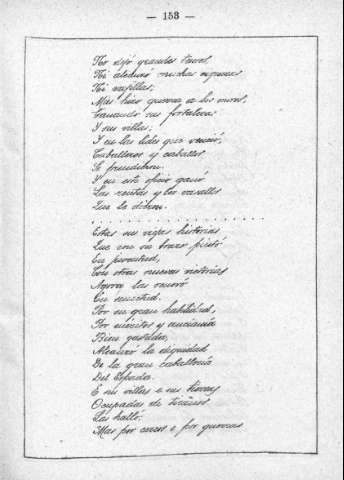 — 153 —
No dejó grandes tesoros,
Ni alcanzó muchas riquezas
Ni vajillas;
Mas hizo guerra a los moros,
Ganando sus fortalezas
Y sus villas;
Y en las lides que venció,
Caballeros y caballos
Se prendieron,
Y en este oficio ganó
Las rentas y los vasallos
Que le dieron.
. . . . . . . . . . . . . . . . . .
Estas sus viejas historias
Que con su brazo pintó
En juventud,
Con otras nuevas victorias
Agora las renovó
En senectud.
Por su gran habilidad,
Por méritos y ancianía
Bien gastada,
Alcanzó la dignidad
De la gran caballería
Del Espada.
E sus villas e sus tierras
Ocupadas de tiranos
Las halló:
Mas por cercos e por guerras